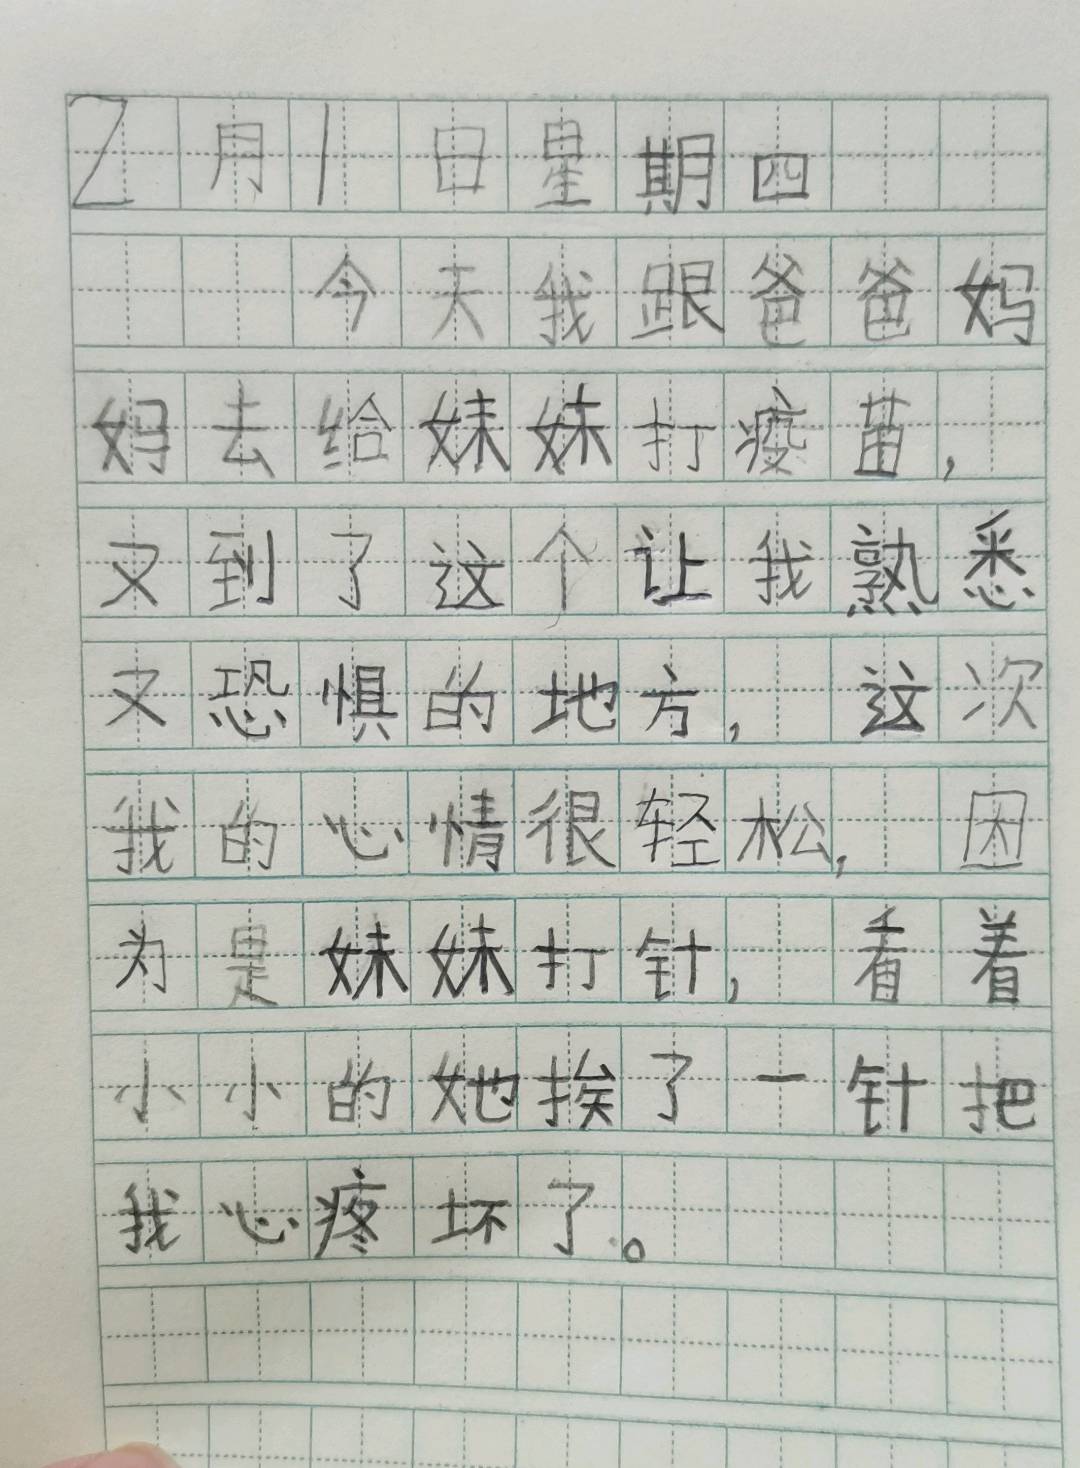 2月1日星期四
今天我跟爸爸妈
妈去给妹妹打疫苗,
又到了这个让我熟悉
又恐惧的地方,这次
我的心情很轻松,因
为是妹妹打针,看着
小小的她挨了一针把
我心疼坏了。